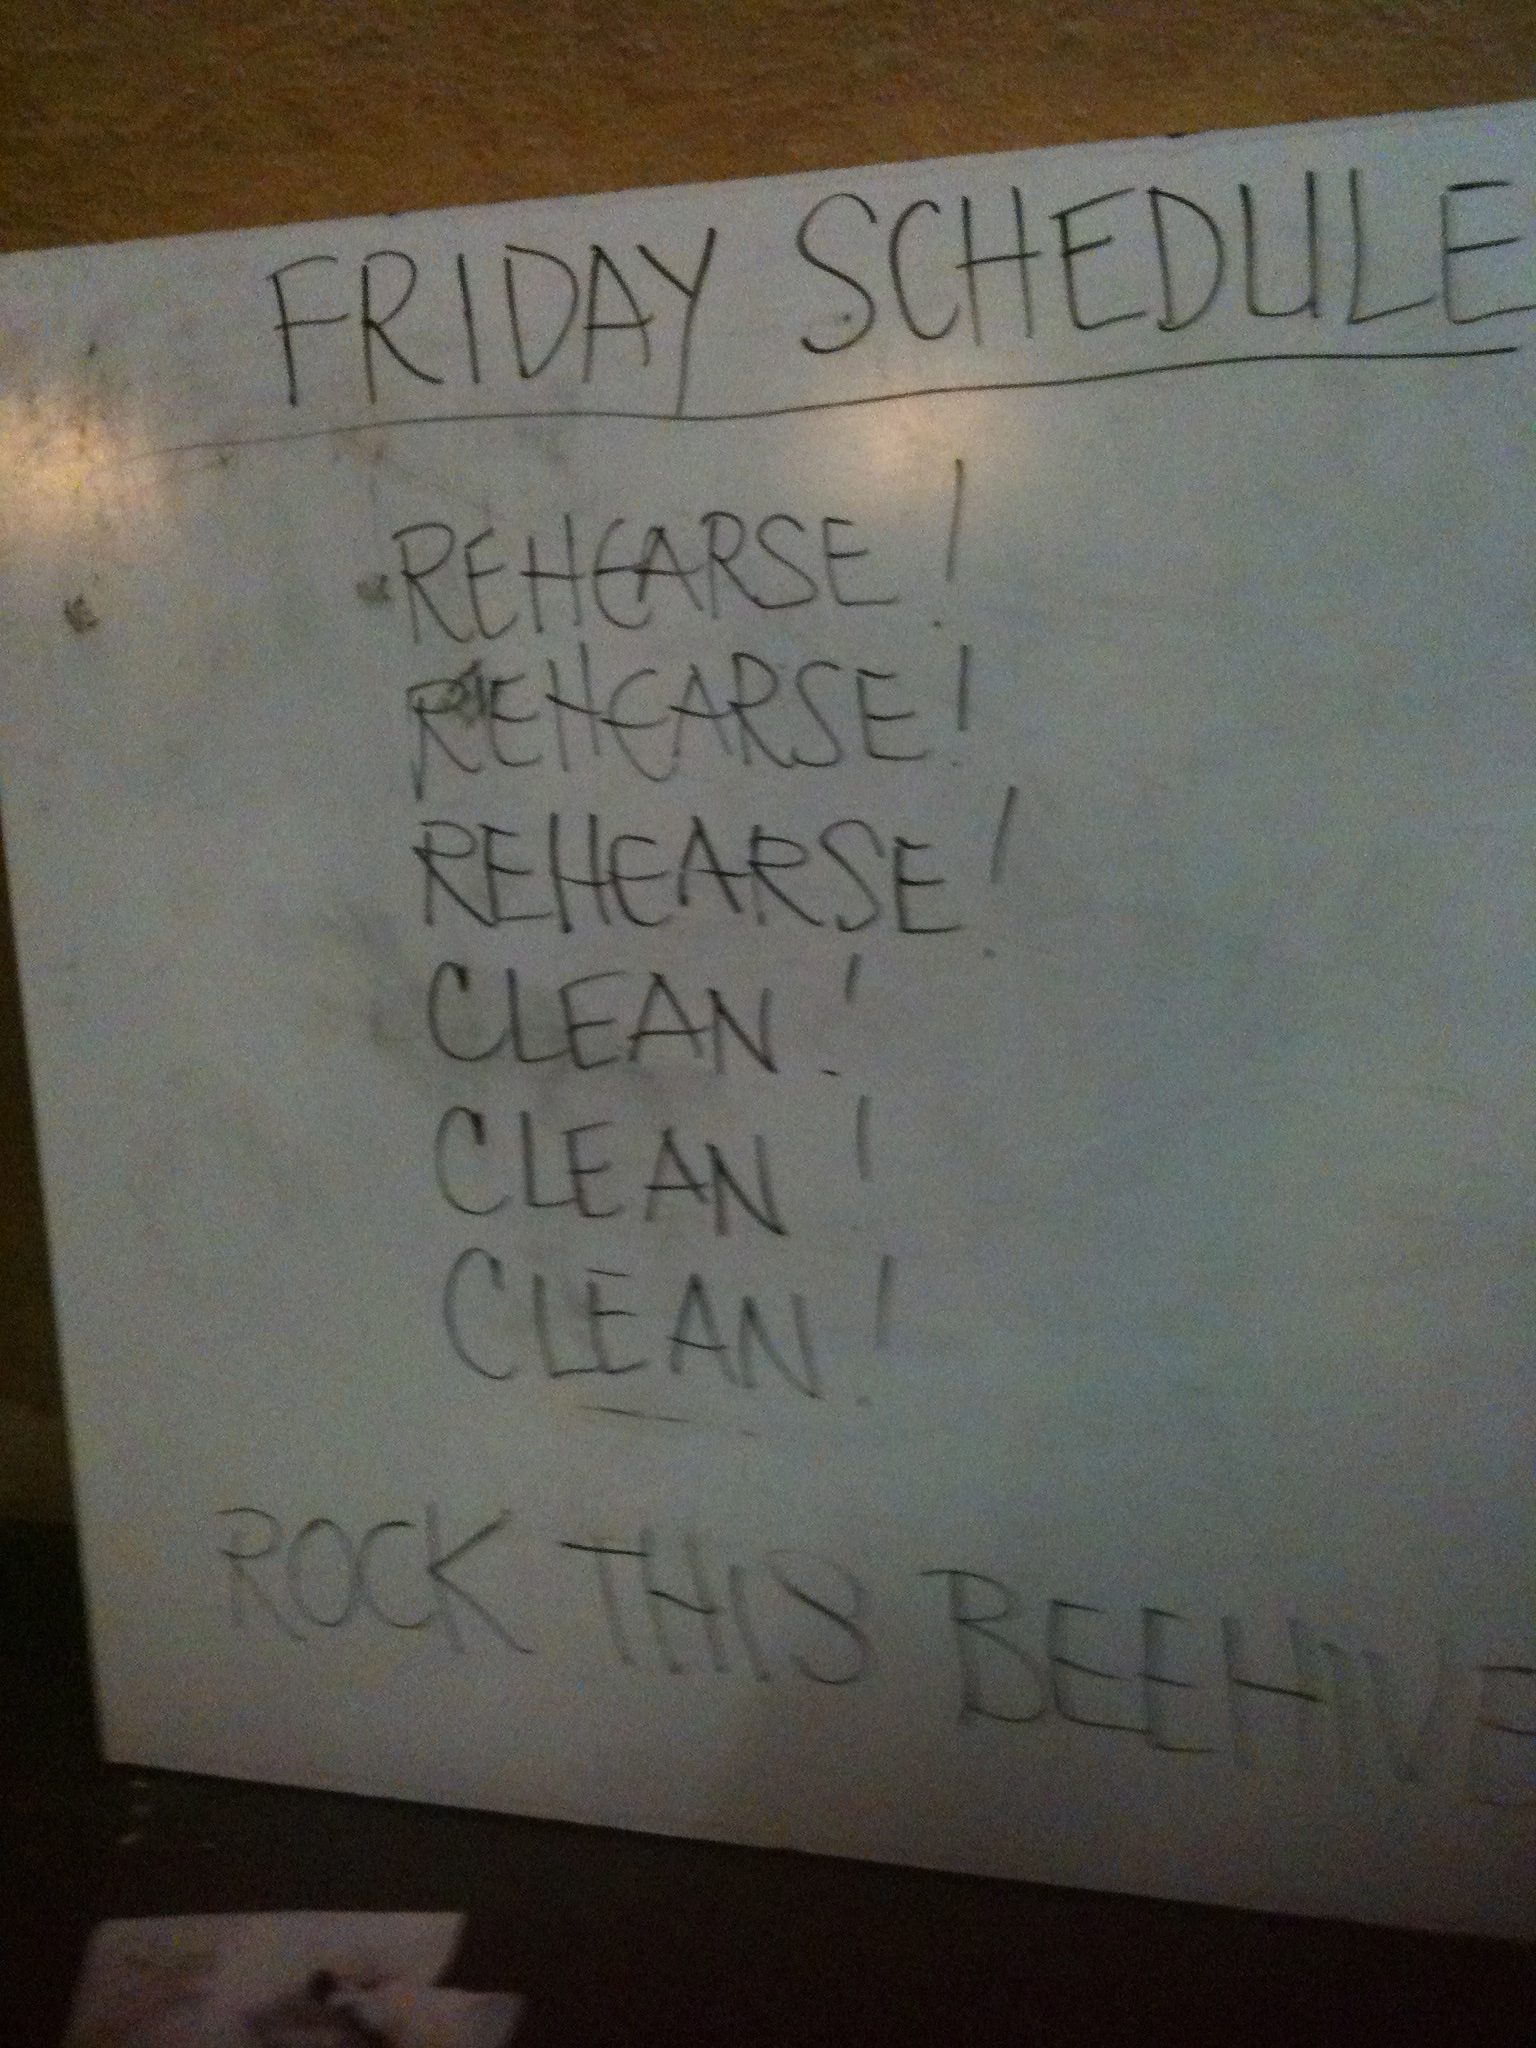 FRIDAY SCHEDULE
REHEARSE!
REHEARSE!
REHEARSE!
CLEAN!
CLEAN!
CLEAN!
ROCK THIS BEEHIVE